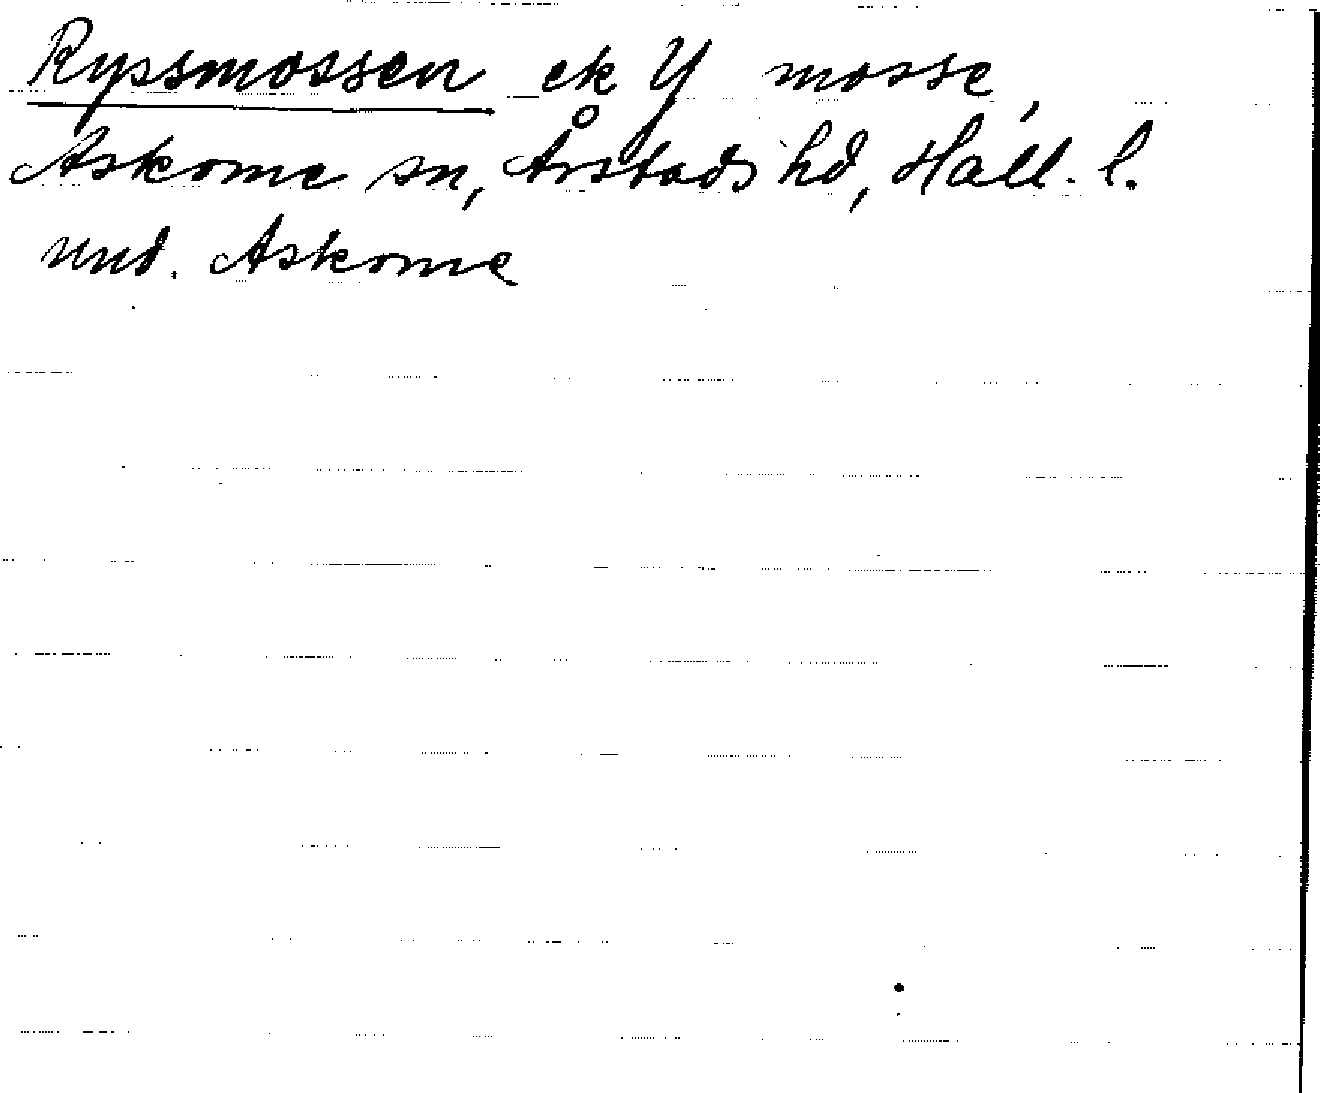 Ryssmossen ek Y mosse,
Askome sn, Årstads hd, Hall. l.
und. Askome